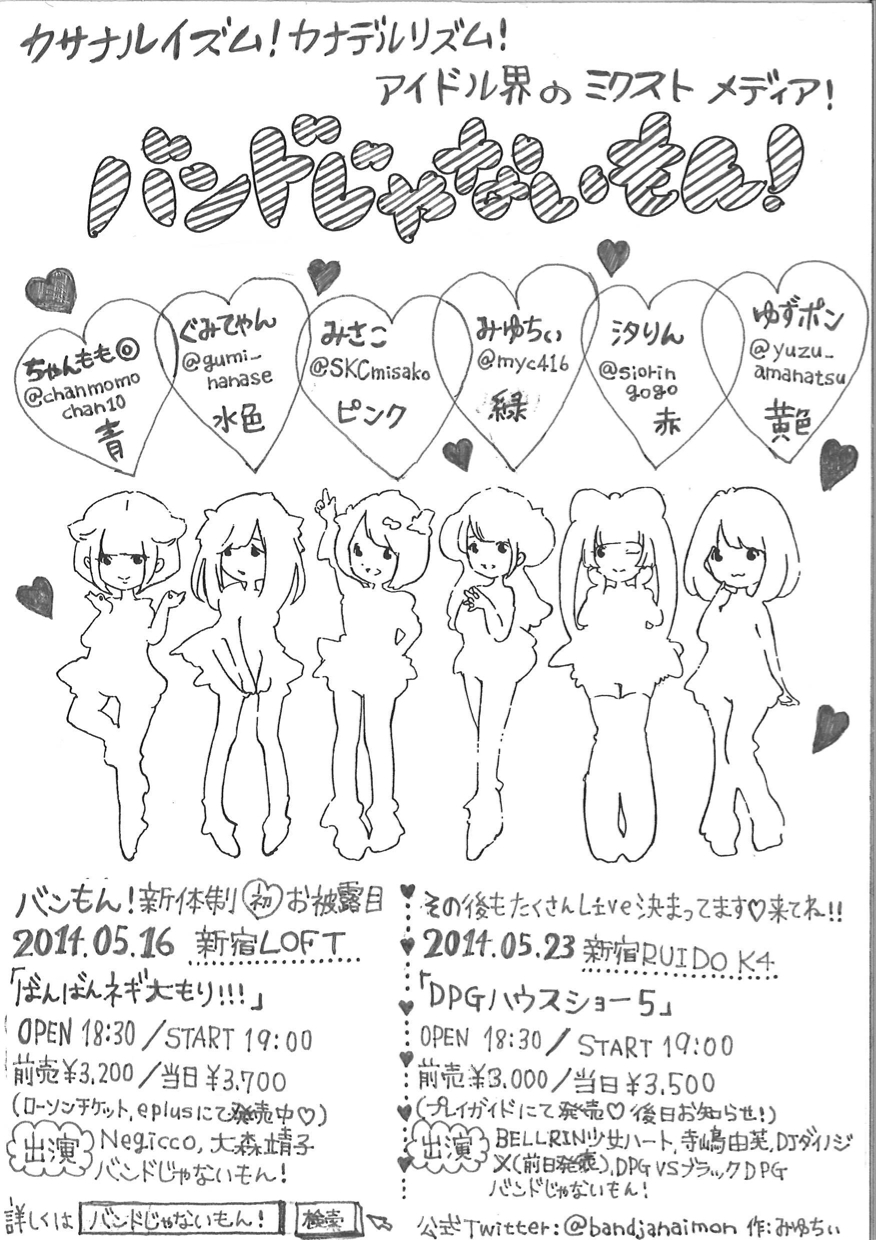 カサナルイズム！カナデルリズム！
アイドル界の ミクスト メディア！
バンドじゃないもん！
ちゃんもも◎
@chanmomo
chan10
青
ぐみてゃん
@gumi_
hanase
水色
みさこ
@SKCmisako
ピンク
みゆちぃ
@myc416
緑
汐りん
@siorin
gogo
赤
ゆずポン
@yuzu_
amanatsu
黄色
バンもん！新体制 初 お披露目
2014.05.16 新宿LOFT
「ばんばんネギ大もり!!!」
OPEN 18:30／START 19:00
前売¥3,200／当日¥3,700
(ローソンチケット,eplusにて発売中♡)
出演 Negicco, 大森靖子
バンドじゃないもん！
詳しくは バンドじゃないもん！ 検索
その後もたくさんLive決まってます♡来てね!!
2014.05.23 新宿RUIDO K4
「DPGハウスショー5」
OPEN 18:30／START 19:00
前売¥3,000／当日¥3,500
(プレイガイドにて発売♡後日お知らせ!)
出演 BELLRIN少女ハート, 寺嶋由芙, DJダイノジ
X(前日発売), DPG VSブラックDPG
バンドじゃないもん！
公式Twitter:@bandjanaimon 作:みゆちぃ